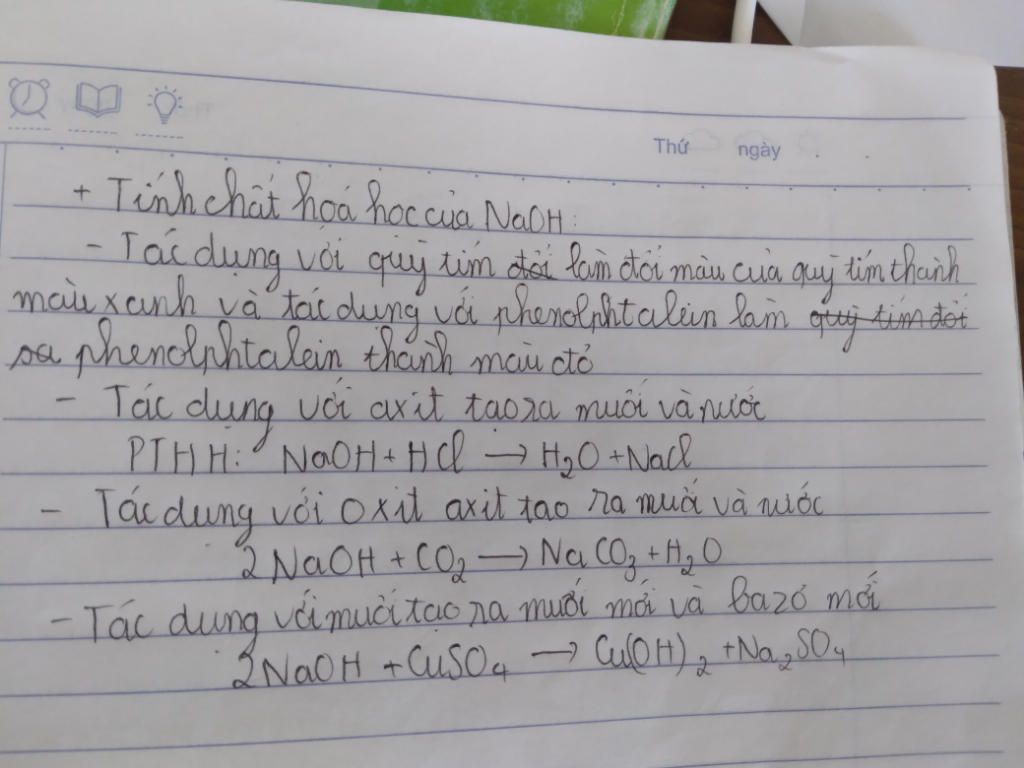 Thứ ngày
+ Tính chất hoá học của NaOH:
- Tác dụng với quỳ tím đổi làm đổi màu của quỳ tím thành
màu xanh và tác dụng với phenolphtalein làm quỳ tím đổi
sa phenolphtalein thành màu đỏ
- Tác dụng với axit tạo ra muối và nước
PTHH: NaOH + HCl → H₂O + NaCl
- Tác dụng với oxit axit tạo ra muối và nước
2NaOH + CO₂ → NaCO₃ + H₂O
- Tác dụng với muối tạo ra muối mới và bazơ mới
2NaOH + CuSO₄ → Cu(OH)₂ + Na₂SO₄